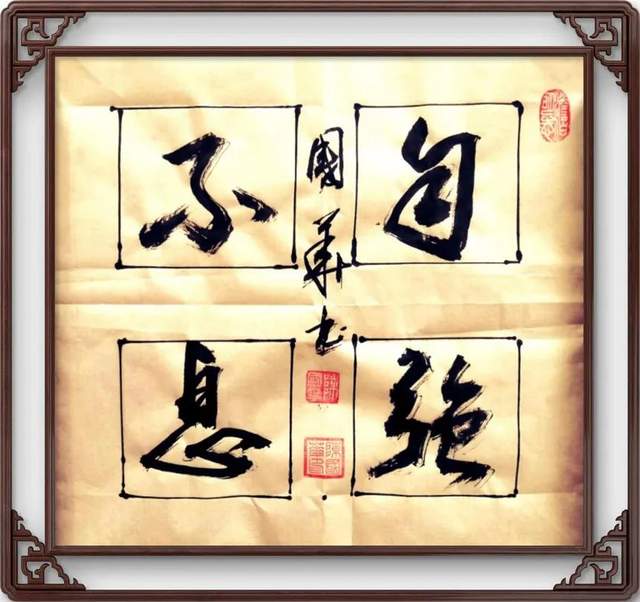 自强
不息
國華书